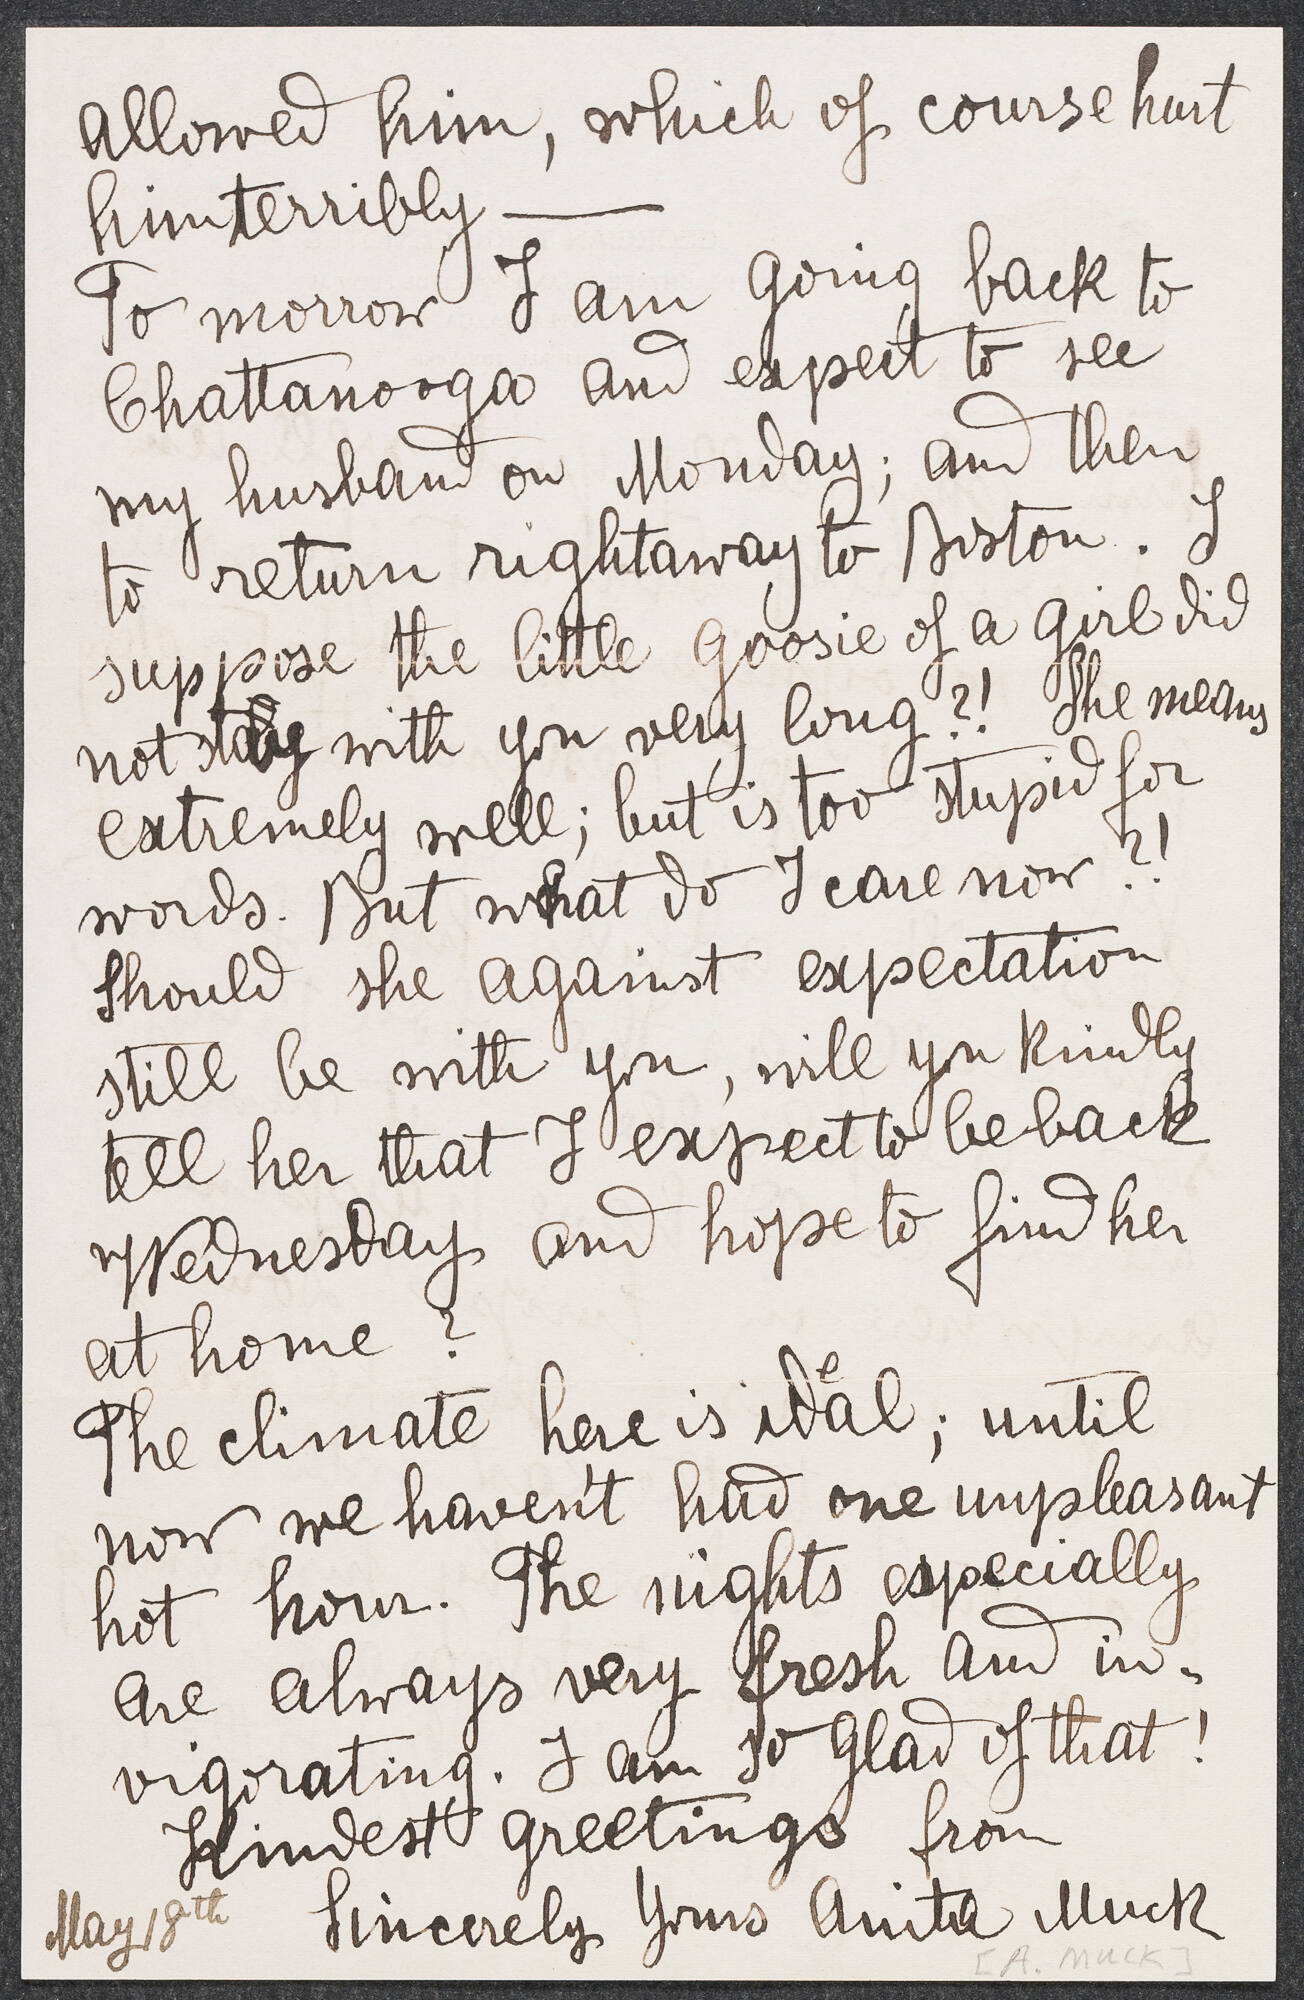 allowed him, which of course hurt
him terribly —
To morrow I am going back to
Chattanooga and expect to see
my husband on Monday; and then
to return rightaway to Boston. I
suppose the little goosie of a girl did
not stay with you very long?! She means
extremely well; but is too stupid for
words. But what do I care now?!
Should she against expectation
still be with you, will you kindly
tell her that I expect to be back
Wednesday and hope to find her
at home?
The climate here is ideal; until
now we haven't had one unpleasant
hot hour. The nights especially
are always very fresh and in-
vigorating. I am so glad of that!
Kindest greetings from
May 18th Sincerely Yours Anita Muck
[A. MUCK]